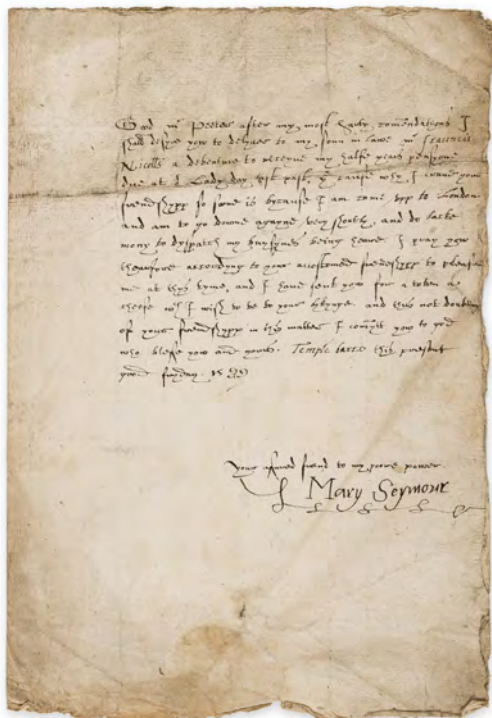 Good mr Peeters after my most harty comendations I
shall desyre yow to delyver to my sonn in lawe mr Frauncis
Nicolls a debenture to receyve my halfe years pensyone
due at Lady day last past, cause why, I crave your
frendshypp so sone is bycause I am come upp to London
and am to go downe agayne very shortly, and do lacke
mony to dyspatch my busynes being heare I pray yow
therefore accordyng to your accustomed frendshypp to pleasure
me at thys tyme, and I have sent yow for a token a
cheese wch I wish to be to your lykynge. and thus not doubting
of your frendshypp in this matter I comytt yow to god
who blesse yow and yours. Temple barre this present
good fryday. 15
your assured frend to my poore power
Mary Seymour